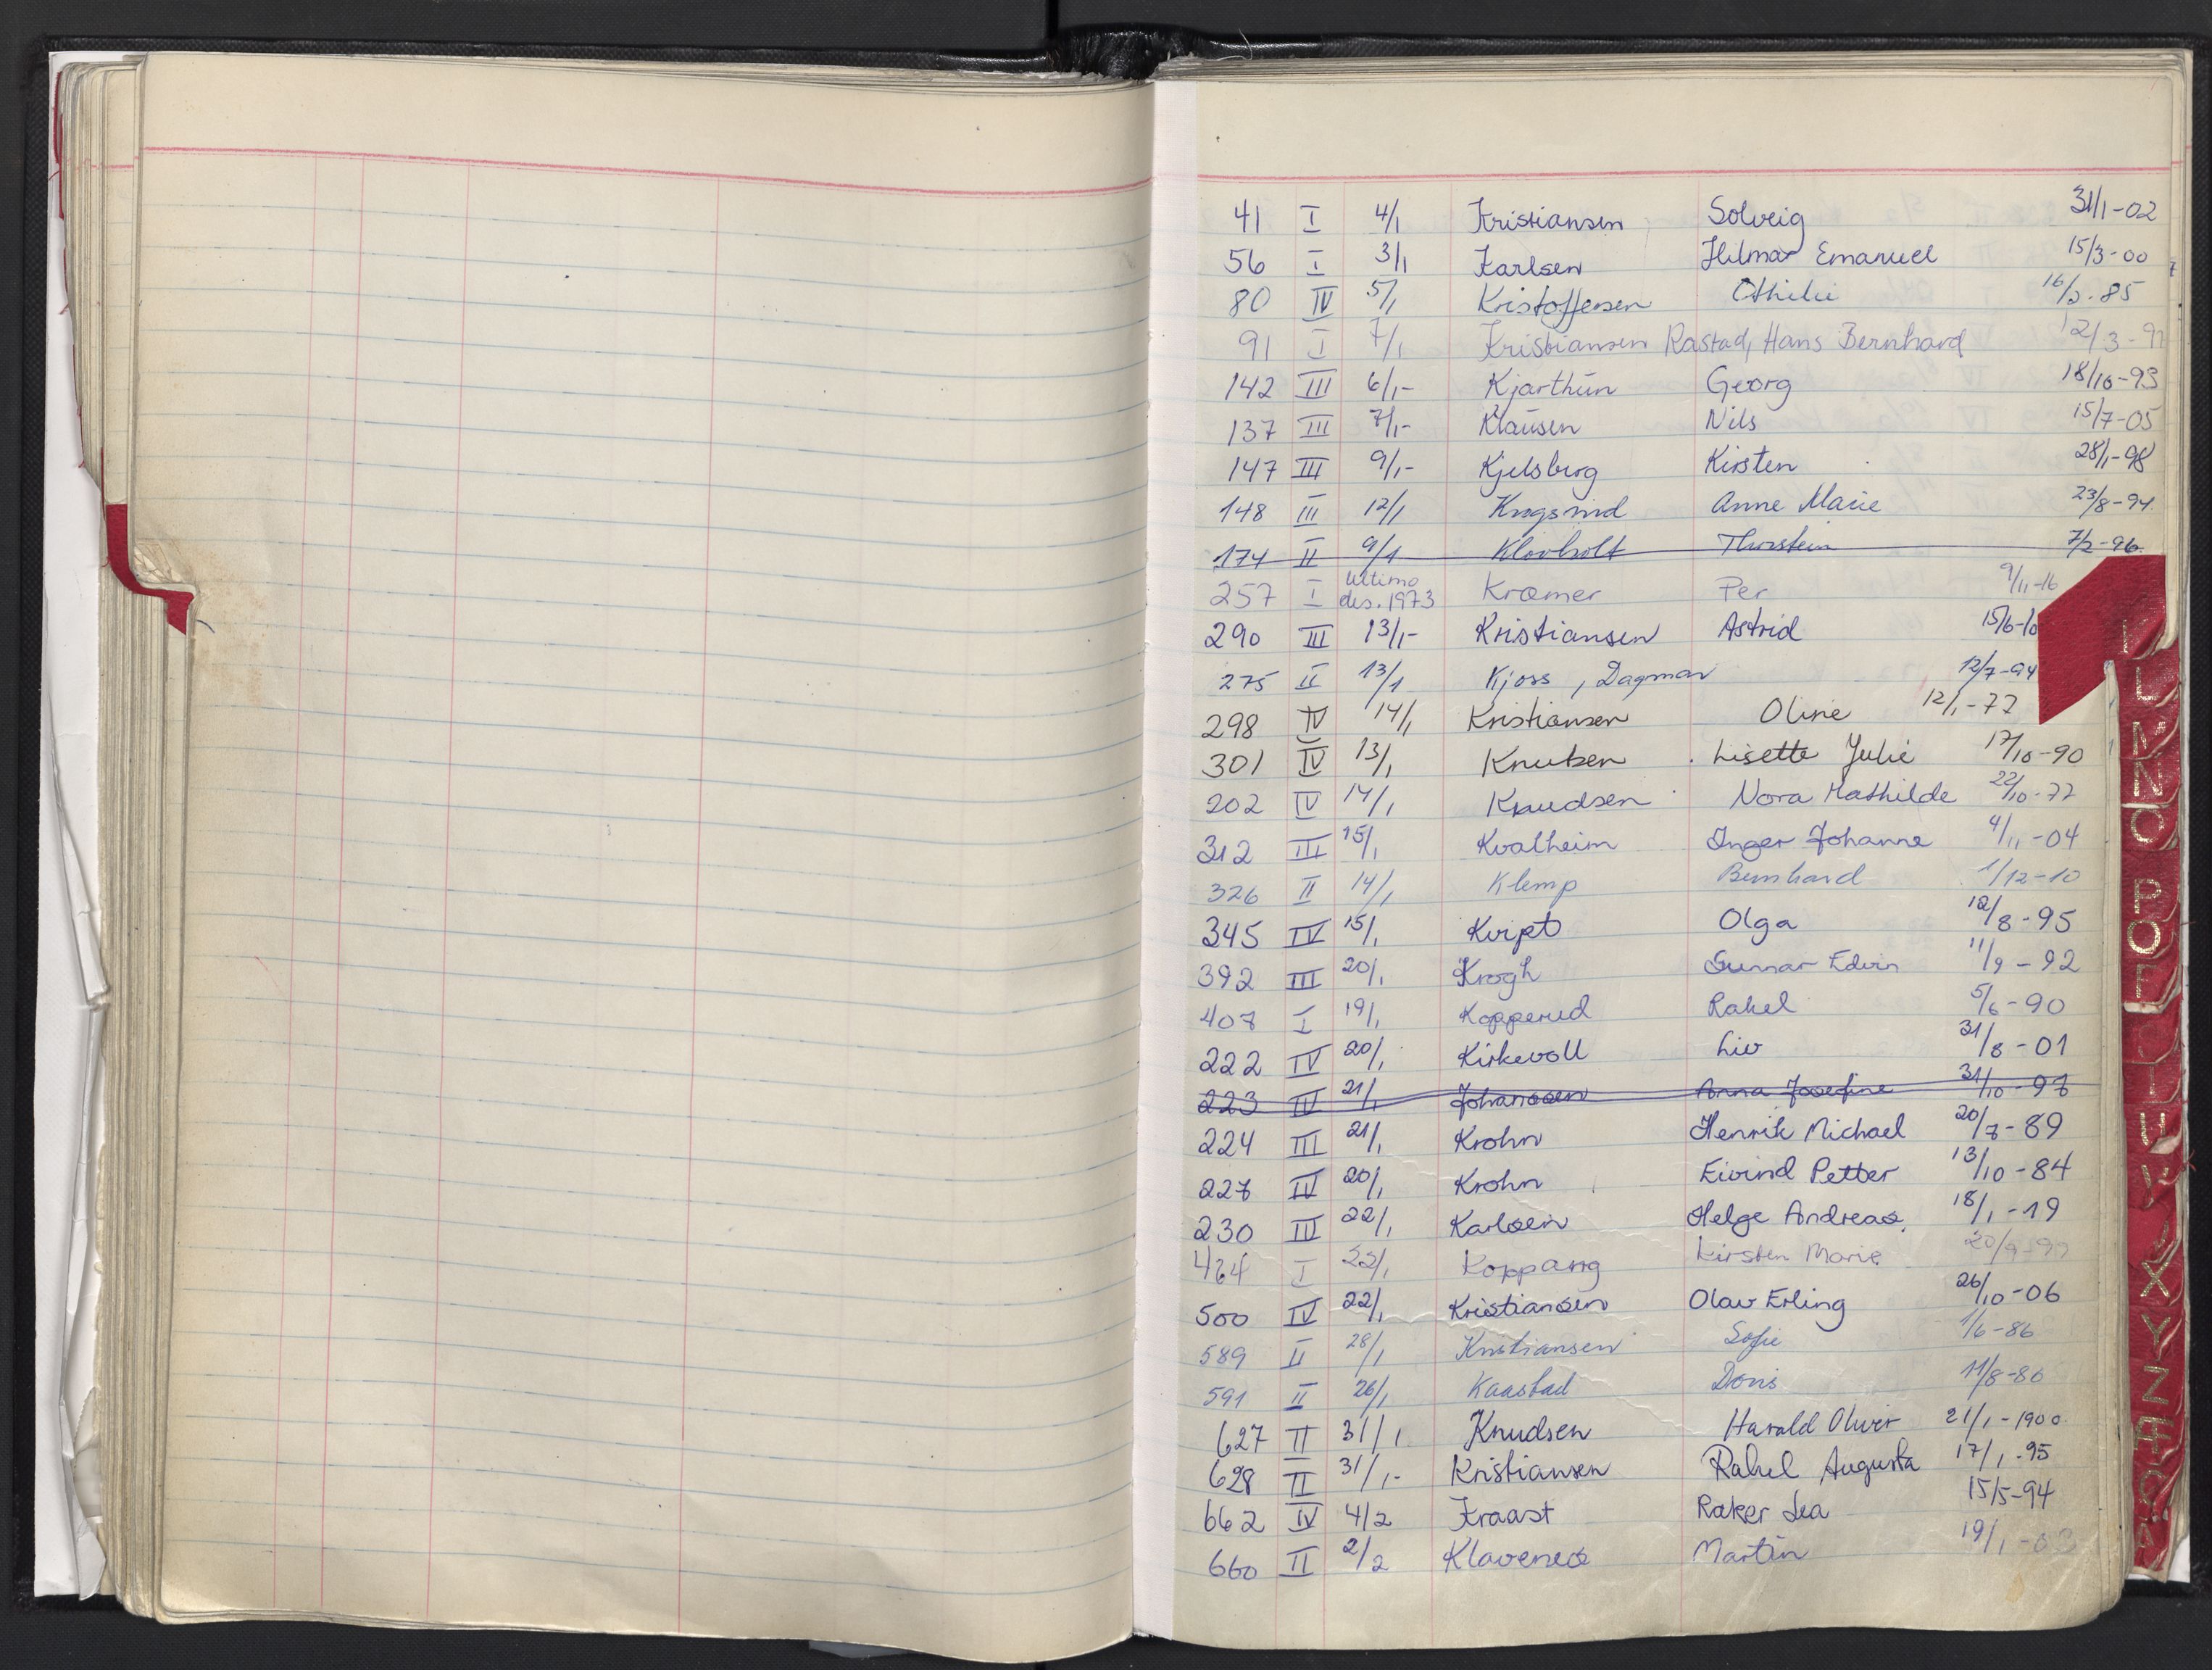 41 I 4/1 Kristiansen Solveig 31/1-02
56 I 3/1 Karlsen Hilmar Emanuel 15/3-00
80 IV 5/1 Kristoffersen Othilie 16/2-85
91 I 7/1 Kristiansen Rastad, Hans Bernhard 12/3-91
142 III 6/1- Kjarthun Georg 18/10-93
137 III 7/1- Klausen Nils 15/7-05
147 III 9/1- Kjelsberg Kirsten 28/1-98
148 III 12/1 Anne Marie 23/8-94
174 II 9/1 Klovholt Thorstein 7/2-96
257 I Ultimo des. 1973 Kræmer Per 9/11-16
290 III 13/1- Kristiansen Astrid 15/6-10
275 II 13/1 Kjoss, Dagmar 12/7-94
298 IV 14/1 Kristiansen Oline 12/1-77
301 IV 13/1 Knutsen Lisette Julie 17/10-90
202 IV 14/1 Knudsen Nora Mathilde 22/10-77
312 III 15/1 Kvalheim Inger Johanne 4/11-04
326 II 14/1 Klemp Bernhard 1/12-10
345 IV 15/1 Olga 12/8-95
392 III 20/1 Krogh Gunnar Edvin 11/9-92
407 I 19/1 Kopperud Rakel 5/6-90
222 IV 20/1 Kirkevoll Liv 31/8-01
223 IV 21/1 Johanssen Anna Josefine 31/10-97
224 III 21/1 Krohn Henrik Michael 20/7-89
227 IV 20/1 Krohn Eivind Petter 13/10-84
230 III 22/1 Karlsen Helge Andreas. 18/1-19
464 I 22/1 Koppang Kirsten Marie 20/9-99
500 IV 22/1 Kristiansen Olav Erling 26/10-06
589 II 28/1 Kristiansen Sofie 1/6-86
591 II 26/1 Kaastad Doris 11/8-86
627 II 31/1 Knudsen Harald Oliver 21/1-1900
628 II 31/1- Kristiansen Rakel Augusta 17/1-95
662 IV 4/2 Kraast Lea 15/5-94
660 II 2/2 Klaveness Martin 19/1-03
L
M
N
O
P
Q
R
V
X
Y
Z
Æ
Ø